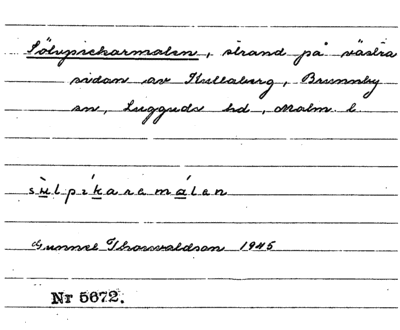 Sölvpickarmalen, strand på västra
sidan av Kullaberg, Brunnby
sn, Luggude hd, Malm. l.
sùlpíkaramálen
Gunnel Thorwaldson 1945
Nr 5672.